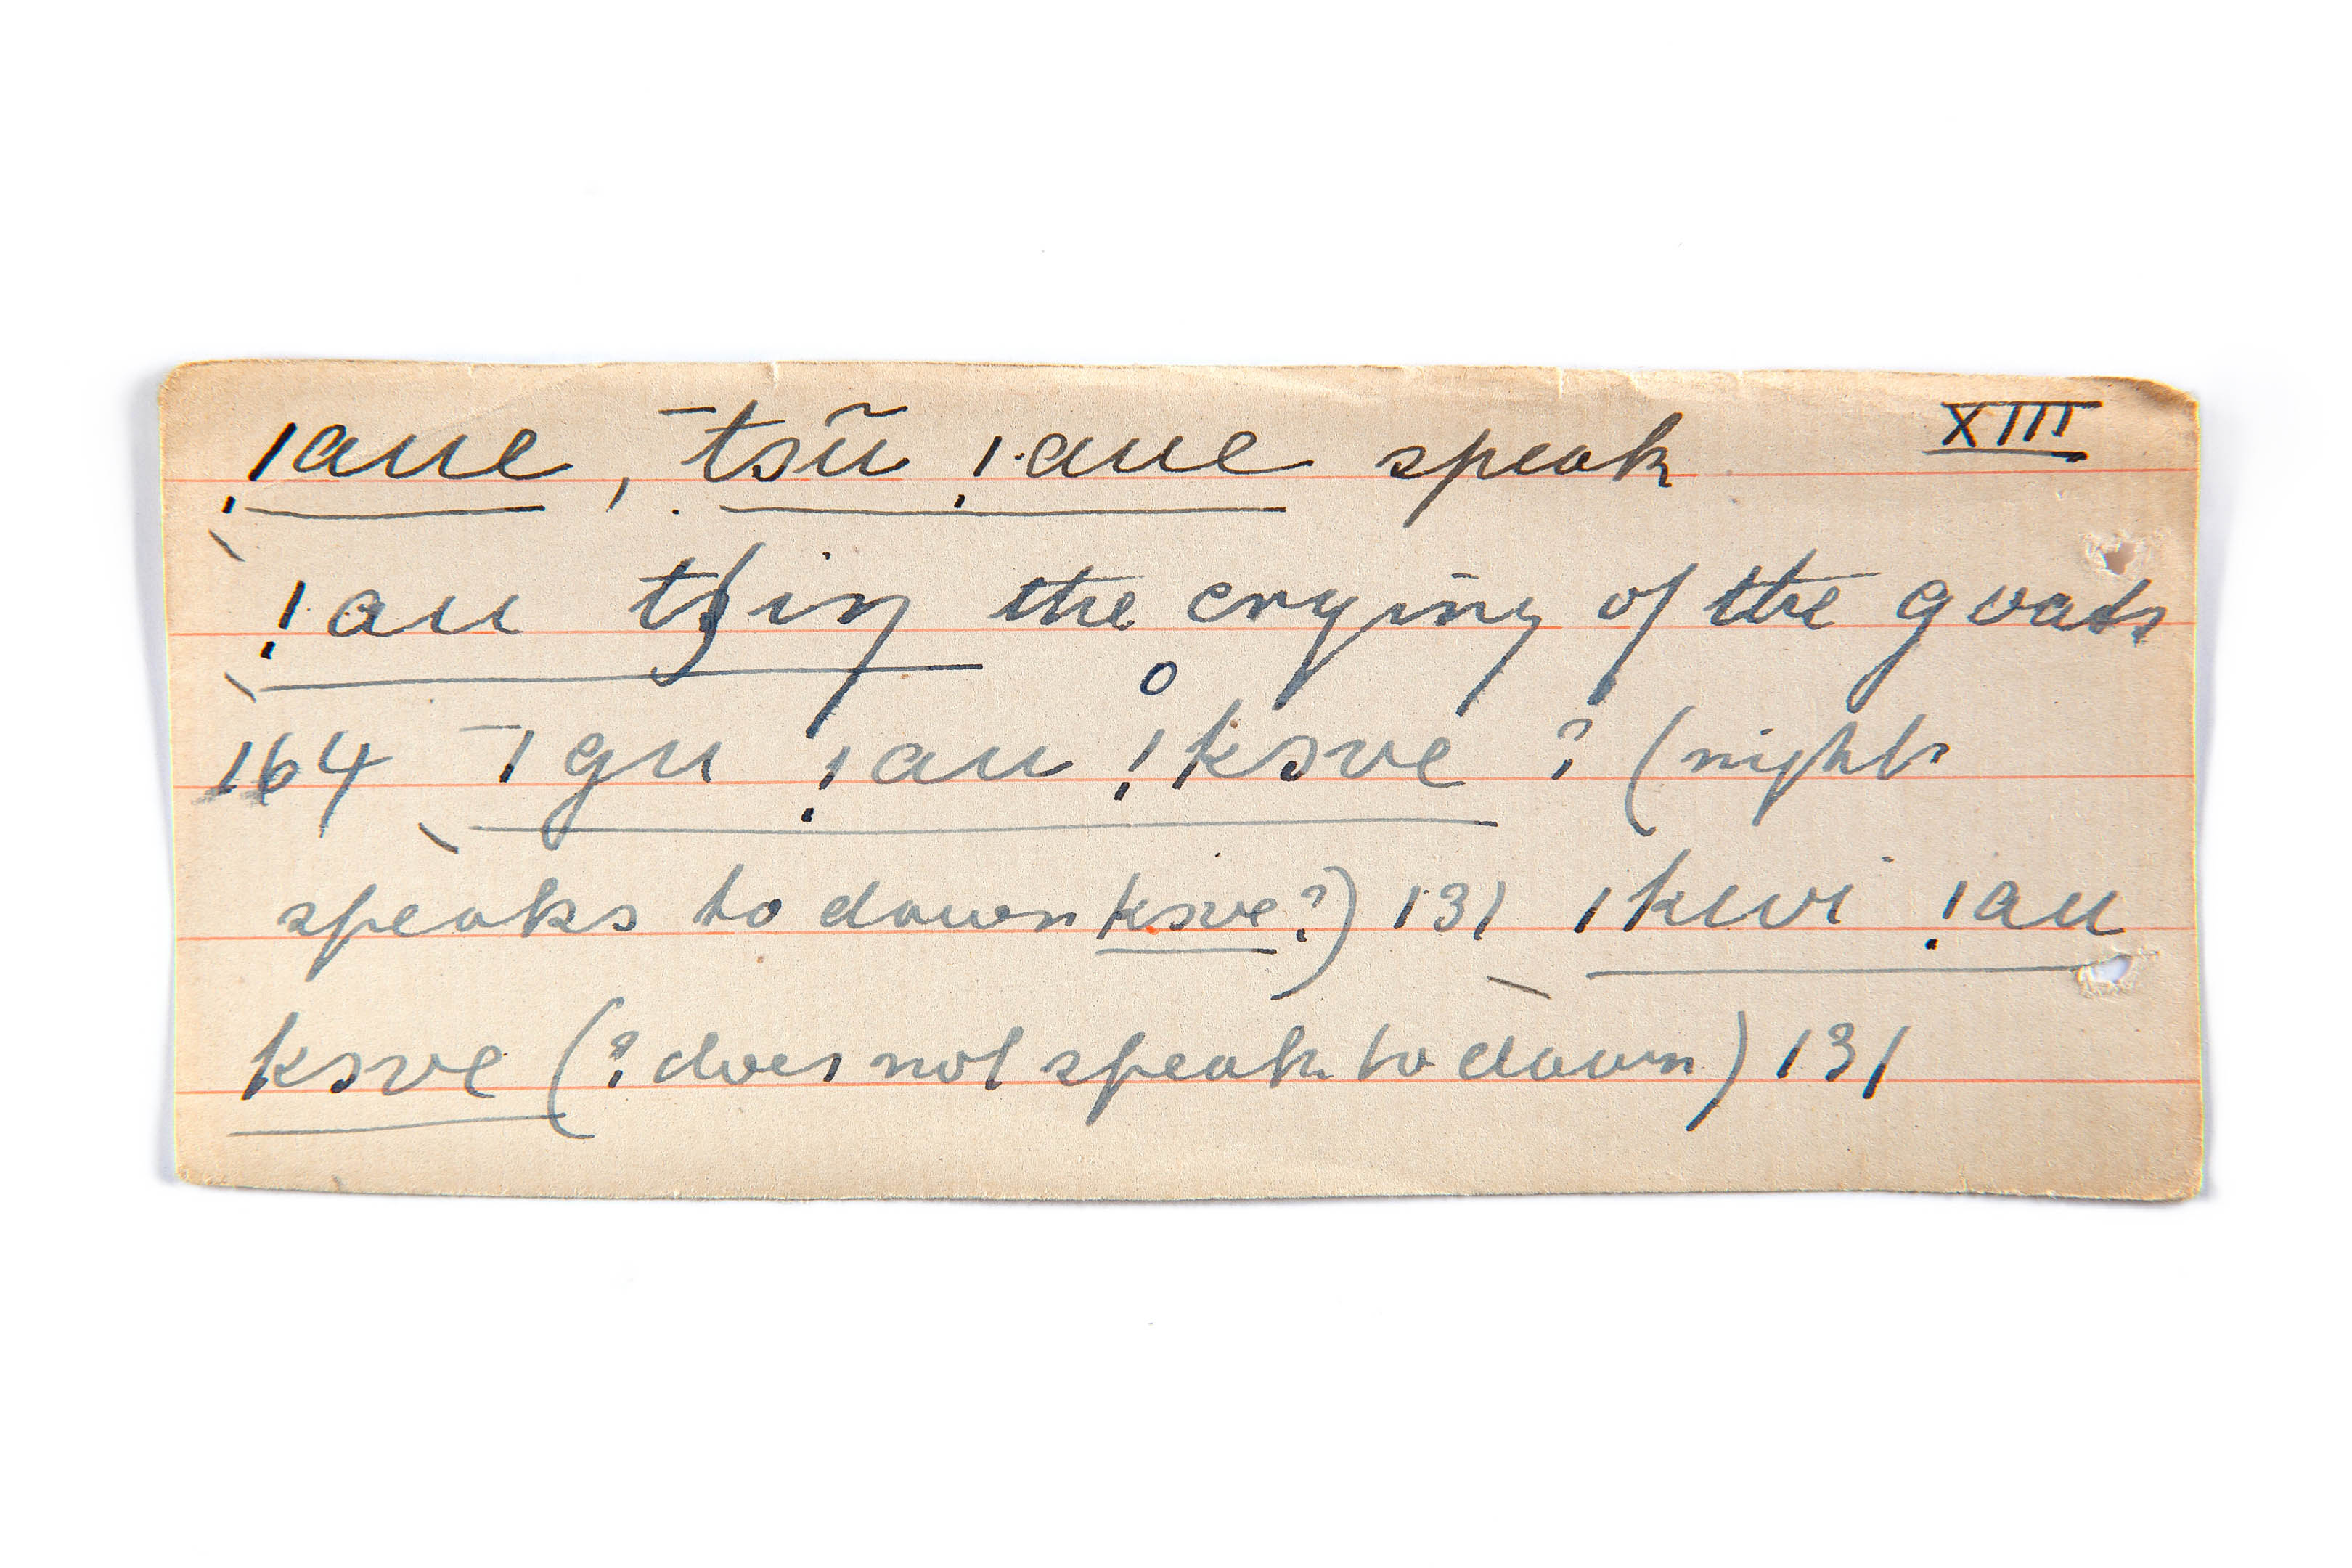 ǀaue, ¯tsũ ǃaue speak XIII
ǃau tʃiŋ the crying of the goats
164 ¯ǀgu ǃau ǃkɜve ? (night
speaks to dawn ksve?) 131 ǀkwi ǃau
ksve (? does not speak to dawn) 131